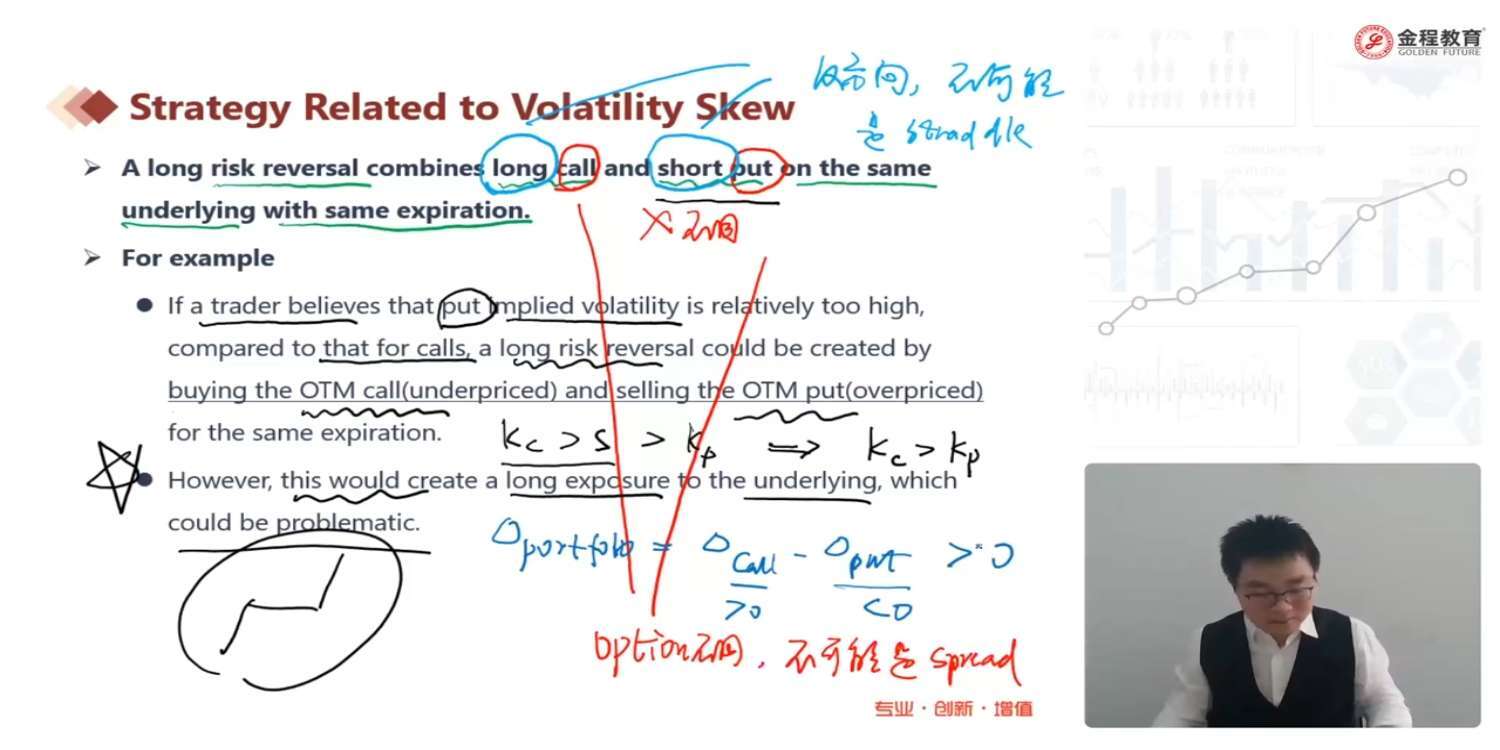 金程教育
GOLDEN FUTURE
Strategy Related to Volatility Skew
反方向，不可能
是 straddle
A long risk reversal combines long call and short put on the same
underlying with same expiration.
X 不同
For example
If a trader believes that put implied volatility is relatively too high,
compared to that for calls, a long risk reversal could be created by
buying the OTM call(underpriced) and selling the OTM put(overpriced)
for the same expiration.
Kc > S > Kp ⇒ Kc > Kp
However, this would create a long exposure to the underlying, which
could be problematic.
Δportfolio = Δcall - Δput > 0
>0 <0
option不同，不可能是 spread
专业·创新·增值